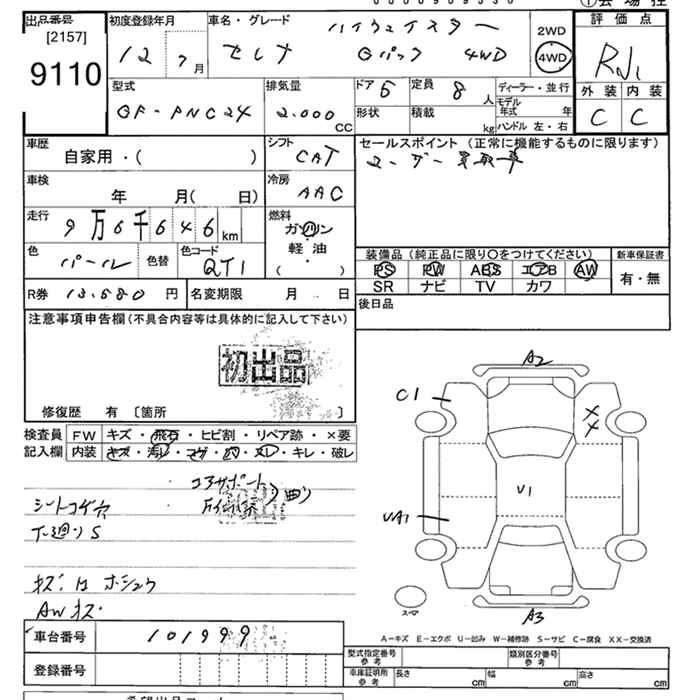 出品番号 [2157]
9110
初度登録年月
12 7月
車名・グレード
ハイウェイスター
セレナ Gパック 4WD
2WD
4WD
評価点
外装 内装
C C
型式
GF-PNC24
排気量
2.000 CC
ドア 5 定員 8 人
形状 積載 kg
ディーラー・並行
モデル年式 年
ハンドル 左・右
車歴
自家用・( )
シフト
CAT
セールスポイント (正常に機能するものに限ります)
ユーザー買取車
車検
年 月( 日)
冷房
AAC
走行
9万6千646km
燃料
ガソリン
軽・油
( ・ )
色 パール 色替 色コード QT1
装備品 (純正品に限り〇をつけてください) 新車保証書
PS PW ABS エアB AW 有・無
SR ナビ TV カワ
R券 13.580円 名変期限 月 日
後日品
注意事項申告欄(不具合内容等は具体的に記入して下さい)
初出品
修復歴 有 〔箇所 〕
検査員記入欄
FW キズ・飛石・ヒビ割・リペア跡・×要
内装 キズ・汚レ・コゲ・穴・スレ・キレ・破レ
コアサポート
シートコゲ穴
下廻りS
キズロホシュウ
AWキズ
車台番号 101999
登録番号
A2
C1
XX
U1
UA1
A3
スペア
A-キズ E-エクボ U-凹み W-補修跡 S-サビ C-腐食 XX-交換済
型式指定番号 参考 類別区分番号 参考
車庫証明所 参考 長さ cm 幅 cm 高さ cm